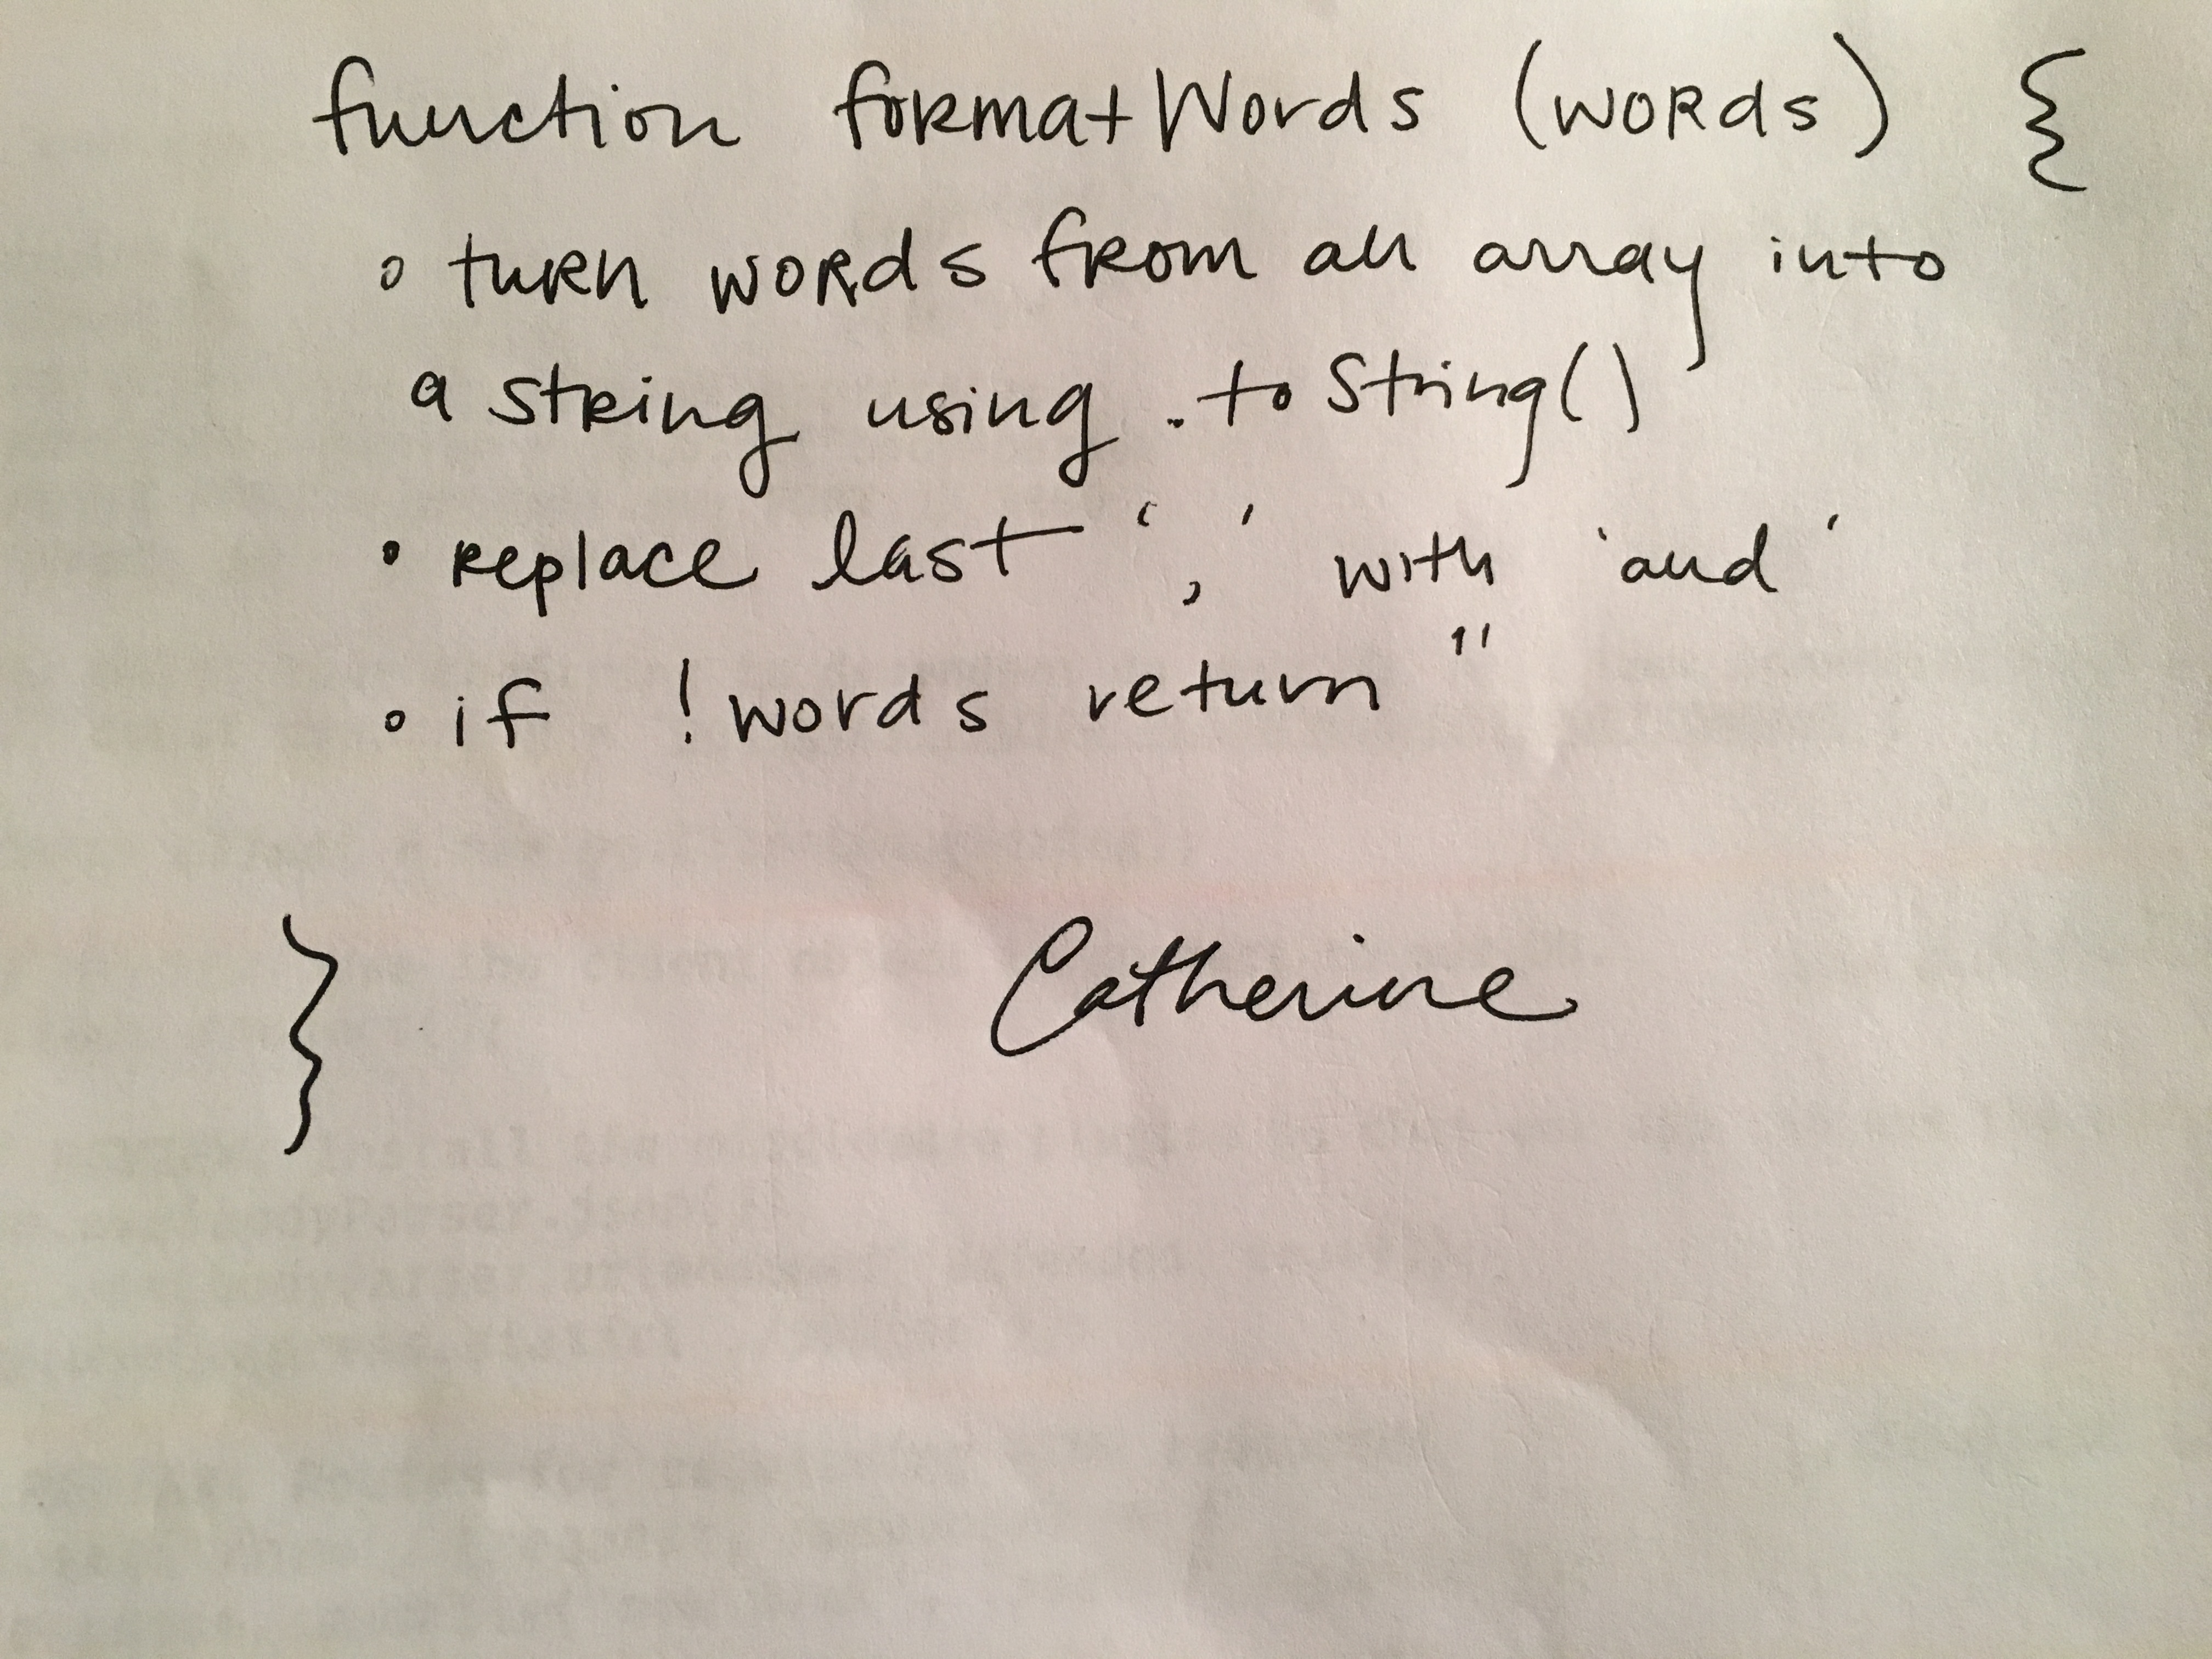 function formatWords (words) {
◦ turn words from an array into
a string using .toString()
• replace last ',' with 'and'
◦ if !words return "
}
Catherine